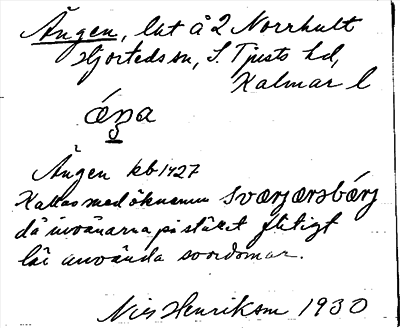 Ängen, lht å 2 Norrhult
Hjorteds sn, S. Tjusts hd,
Kalmar l
áŋa
Ängen kb 1927
Kallas med öknamn sværjærsbærj
då invånarna på stället flitigt
lär använda svordomar.
Nils Henrikson 1930